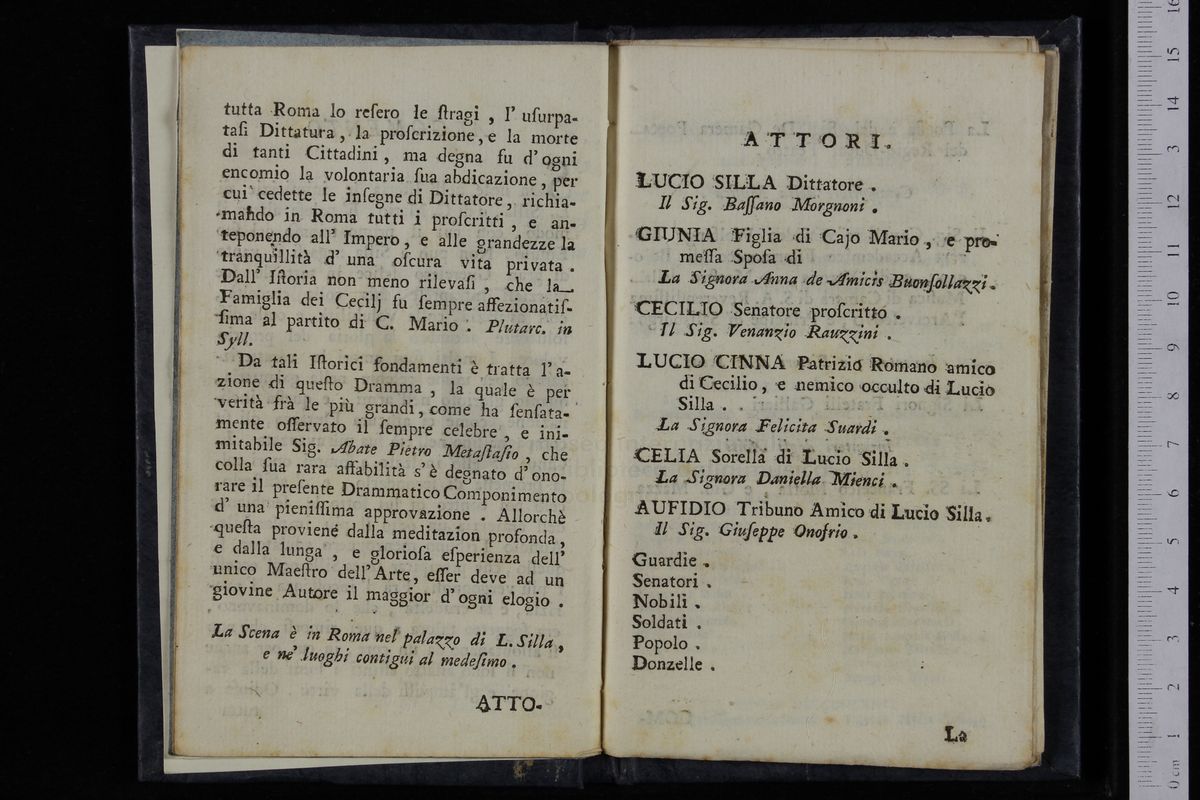 tutta Roma lo reſero le ſtragi , l' uſurpa-
taſi Dittatura , la proſcrizione , e la morte
di tanti Cittadini , ma degna fu d' ogni
encomio la volontaria ſua abdicazione , per
cui cedette le inſegne di Dittatore , richia-
mando in Roma tutti i proſcritti , e an-
teponendo all' Impero , e alle grandezze la
tranquillità d' una oſcura vita privata .
Dall' Iſtoria non meno rilevaſi , che la
Famiglia dei Cecilj fu ſempre affezionatiſ-
ſima al partito di C. Mario . Plutarc. in
Syll.
Da tali Iſtorici fondamenti è tratta l' a-
zione di queſto Dramma , la quale è per
verità frà le più grandi , come ha ſenſata-
mente oſſervato il ſempre celebre , e ini-
mitabile Sig. Abate Pietro Metaſtaſio , che
colla ſua rara affabilità s' è degnato d' ono-
rare il preſente Drammatico Componimento
d' una pieniſſima approvazione . Allorchè
queſta proviene dalla meditazion profonda ,
e dalla lunga , e glorioſa eſperienza dell'
unico Maeſtro dell' Arte , eſſer deve ad un
giovine Autore il maggior d' ogni elogio .
La Scena è in Roma nel palazzo di L. Silla ,
e ne' luoghi contigui al medeſimo .
ATTO-
ATTORI.
LUCIO SILLA Dittatore .
Il Sig. Baſſano Morgnoni .
GIUNIA Figlia di Cajo Mario , e pro-
meſſa Spoſa di
La Signora Anna de Amicis Buonſollazzi .
CECILIO Senatore proſcritto .
Il Sig. Venanzio Rauzzini .
LUCIO CINNA Patrizio Romano amico
di Cecilio , e nemico occulto di Lucio
Silla .
La Signora Felicita Suardi .
CELIA Sorella di Lucio Silla .
La Signora Daniella Mienci .
AUFIDIO Tribuno Amico di Lucio Silla .
Il Sig. Giuſeppe Onofrio .
Guardie .
Senatori .
Nobili .
Soldati .
Popolo .
Donzelle .
La
0 cm 1 2 3 4 5 6 7 8 9 10 11 12 13 14 15 16